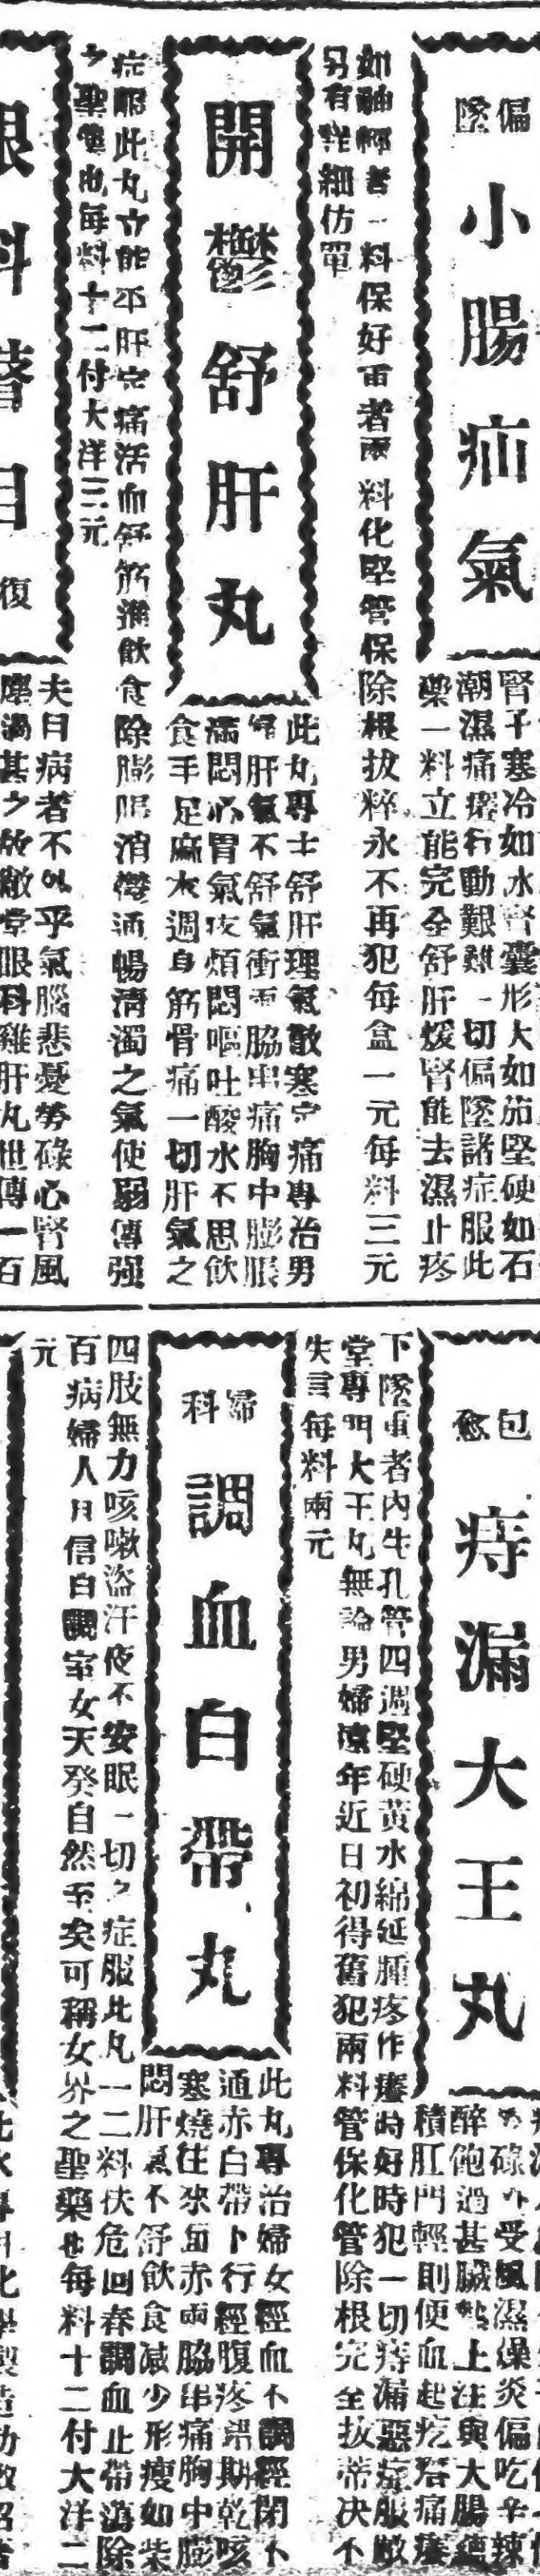 偏墜
小腸疝氣
腎子寒冷如水腎囊形大如茄堅硬如石
潮濕痛癢行動艱難一切偏墜諸症服此
藥一料立能完全舒肝煖腎能去濕止疼
如 者一料保好重者兩料化堅管保除根拔粹永不再犯每盒一元每料三元
另有詳細仿單
開鬱舒肝丸
此丸專士舒肝理氣散寒定痛專治男
婦肝氣不舒氣衝兩脇串痛胸中膨脹
滿悶心胃氣攻煩悶嘔吐酸水不思飲
食手足麻木週身筋骨痛一切肝氣之
症服此丸立能平肝定痛活血舒筋進飲食除膨脹消 通暢清濁之氣使弱傳强
之聖藥也每料十二付大洋三元
眼科瞽目復
夫目病者不外乎氣腦悲憂勞碌心腎風
過甚之故敝堂眼科雞肝丸世傳一百
包愈
痔漏大王丸
碌外受風濕燥炎偏吃辛辣
醉飽過甚臟 上注與大腸
積肛門輕則便血起疙瘩痛癢
下墜重者內生孔管四週堅硬黃水綿延腫疼作癢時好時犯一切痔漏惡症服敝
堂專門大王丸無論男婦遠年近日初得舊犯兩料管保化管除根完全拔蒂决不
失言每料兩元
婦科
調血白帶丸
此丸專治婦女經血不調經閉不
通赤白帶下行經腹疼錯期乾咳
寒燒往來血赤兩脇串痛胸中膨
悶肝氣不舒飲食減少形瘦如柴
四肢無力咳嗽盜汗夜不安眠一切之症服此丸一二料扶危回春調血止帶 除
百病婦人日信白調室女天癸自然至矣可稱女界之聖藥也每料十二付大洋二
元